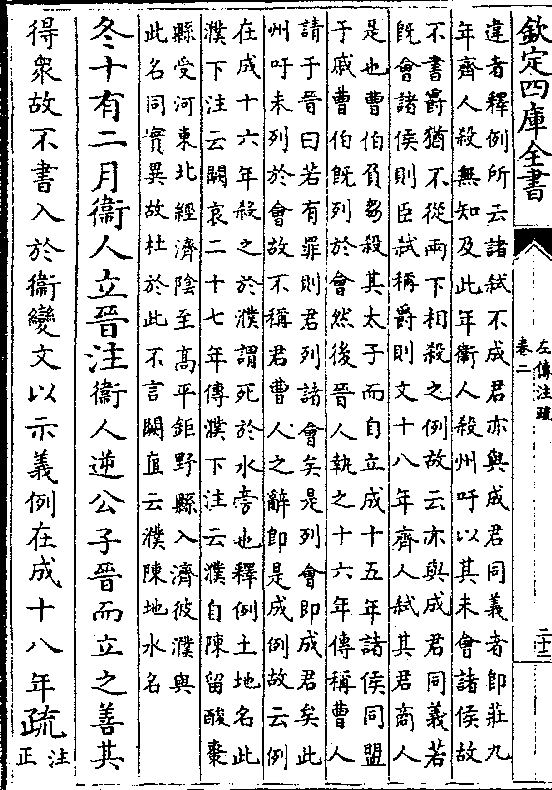 欽定四庫全書
左傳注疏
卷二
二十三
違者釋例所云諸弒不成君亦與成君同義者即莊九
年齊人殺無知及此年衛人殺州吁以其未會諸侯故
不書爵猶不從兩下相殺之例故云亦與成君同義若
既會諸侯則臣弒稱爵則文十八年齊人弒其君商人
是也曹伯負芻殺其太子而自立成十五年諸侯同盟
于戚曹伯既列於會然後晉人執之十六年傳稱曹人
請于晉曰若有罪則君列諸會矣是列會即成君矣此
州吁未列於會故不稱君曹人之辭即是成例故云例
在成十六年殺之於濮謂死於水旁也釋例土地名此
濮下注云闕哀二十七年傳濮下注云濮自陳留酸棗
縣受河東北經濟陰至高平鉅野縣入濟彼濮與
此名同實異故杜於此不言闕直云濮陳地水名
冬十有二月衛人立晉注衛人逆公子晉而立之善其
得衆故不書入於衛變文以示義例在成十八年疏注
正